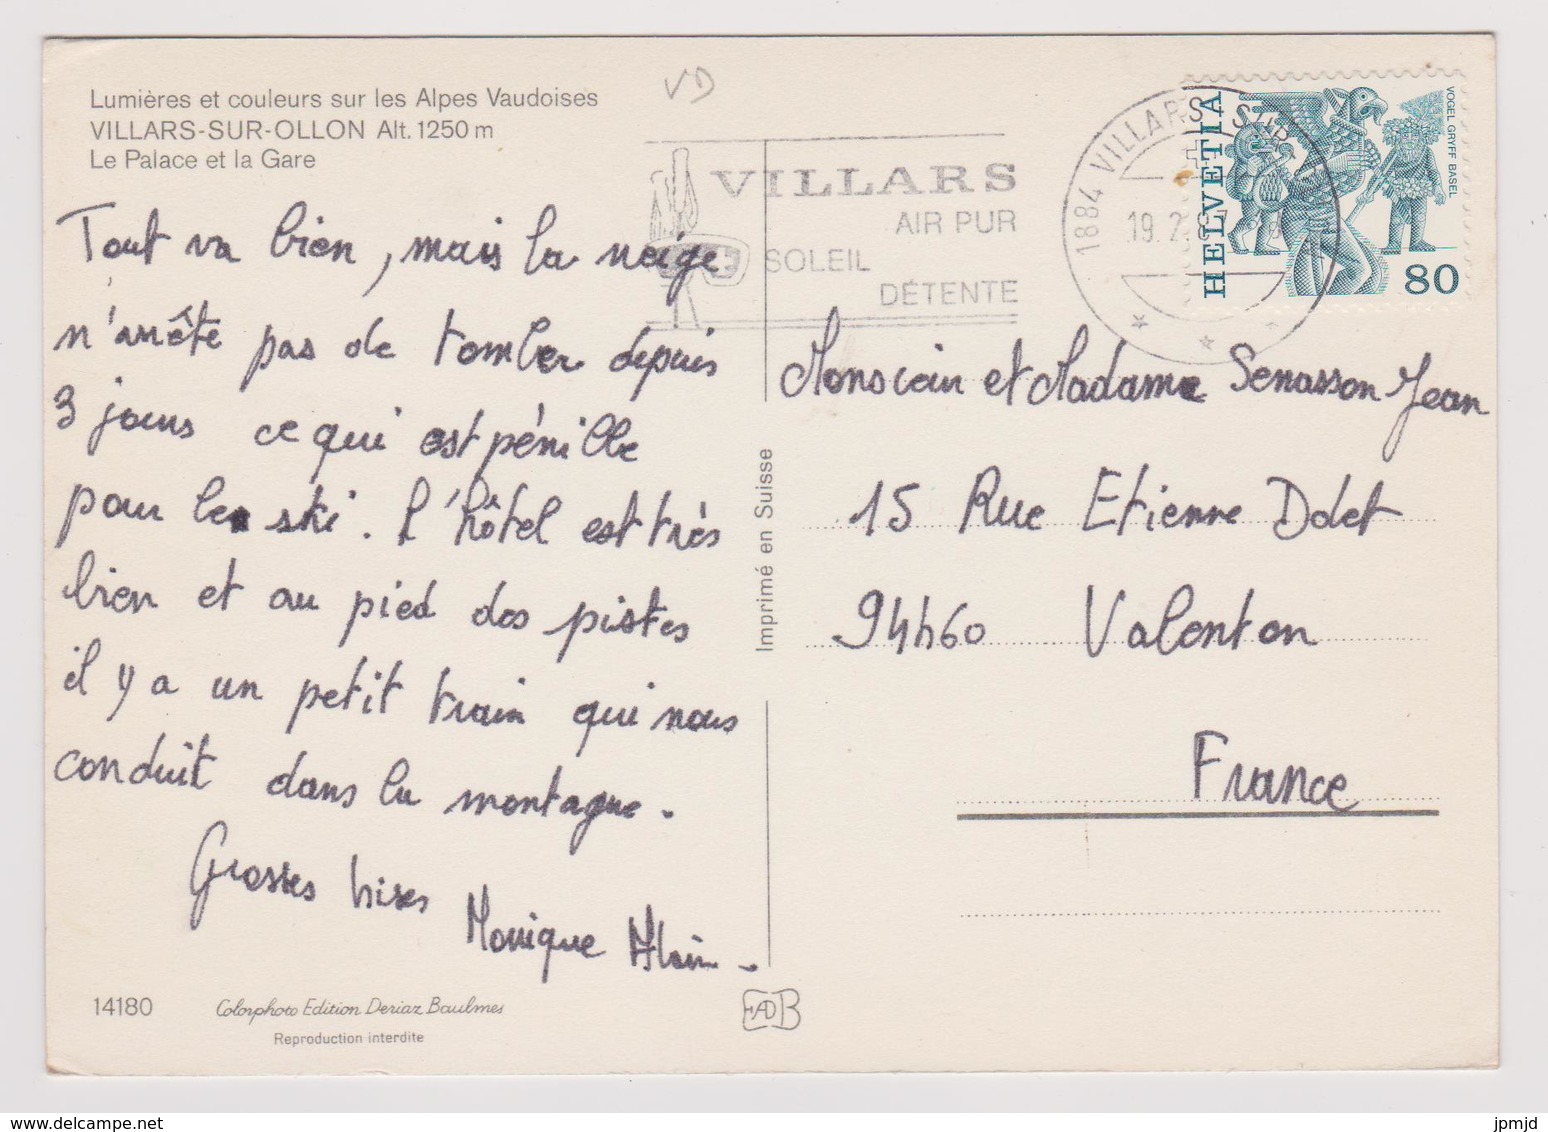 Lumières et couleurs sur les Alpes Vaudoises
VILLARS-SUR-OLLON Alt. 1250 m
Le Palace et la Gare
VD
VILLARS
AIR PUR
SOLEIL
DÉTENTE
1884 VILLARS
19. 2. 87
HELVETIA
VOGEL GRYFF BASEL
80
Tout va bien, mais la neige
n'arrête pas de tomber depuis
3 jours ce qui est pénible
pour le ski. L'hôtel est très
bien et au pied des pistes
il y a un petit train qui nous
conduit dans la montagne.
Grosses bises
Monique Alain.
Imprimé en Suisse
Monsieur et Madame Senasson Jean
15 Rue Etienne Dolet
94460 Valenton
France
14180
Colorphoto Edition Deriaz Baulmes
Reproduction interdite
EADB
delcampe.net
jpmjd